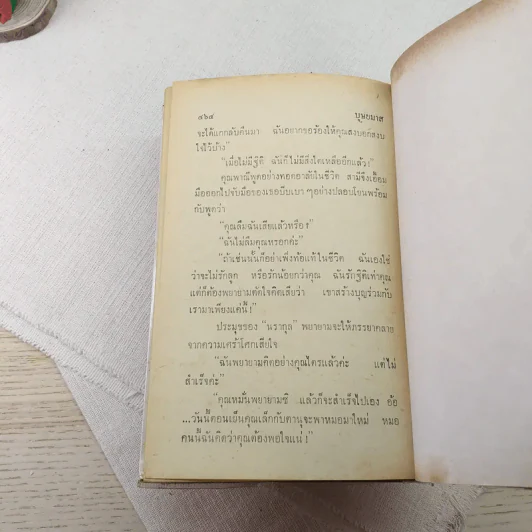 ๔๖๔ บุษยมาส
จะได้แกกลับคืนมา ฉันอยากขอร้องให้คุณสงบอกสงบ
ใจไว้บ้าง”
“เมื่อไม่มีฐิติ ฉันก็ไม่มีสิ่งใดเหลืออีกแล้ว!”
คุณพาณีพูดอย่างทอดอาลัยในชีวิต สามีจึงเอื้อม
มือออกไปจับมือของเธอบีบเบาๆอย่างปลอบโยนพร้อม
กับพูดว่า
“คุณลืมฉันเสียแล้วหรือ?”
“ฉันไม่ลืมคุณหรอกค่ะ”
“ถ้าเช่นนั้นก็อย่าเพิ่งท้อแท้ในชีวิต ฉันเองใช่
ว่าจะไม่รักลูก หรือรักน้อยกว่าคุณ ฉันรักฐิติเท่าคุณ
แต่ก็ต้องพยายามตัดใจคิดเสียว่า เขาสร้างบุญร่วมกับ
เรามาเพียงแค่นี้!”
ประมุขของ “นรากูล” พยายามจะให้ภรรยาคลาย
จากความเศร้าโศกเสียใจ
“ฉันพยายามคิดอย่างคุณใครแล้วค่ะ แต่ไม่
สำเร็จค่ะ”
“คุณหมั่นพยายามซิ แล้วก็จะสำเร็จไปเอง อ้อ
...วันนี้ตอนเย็นคุณเล็กกับดานุจะพาหมอมาใหม่ หมอ
คนนี้ฉันคิดว่าคุณต้องพอใจแน่!”